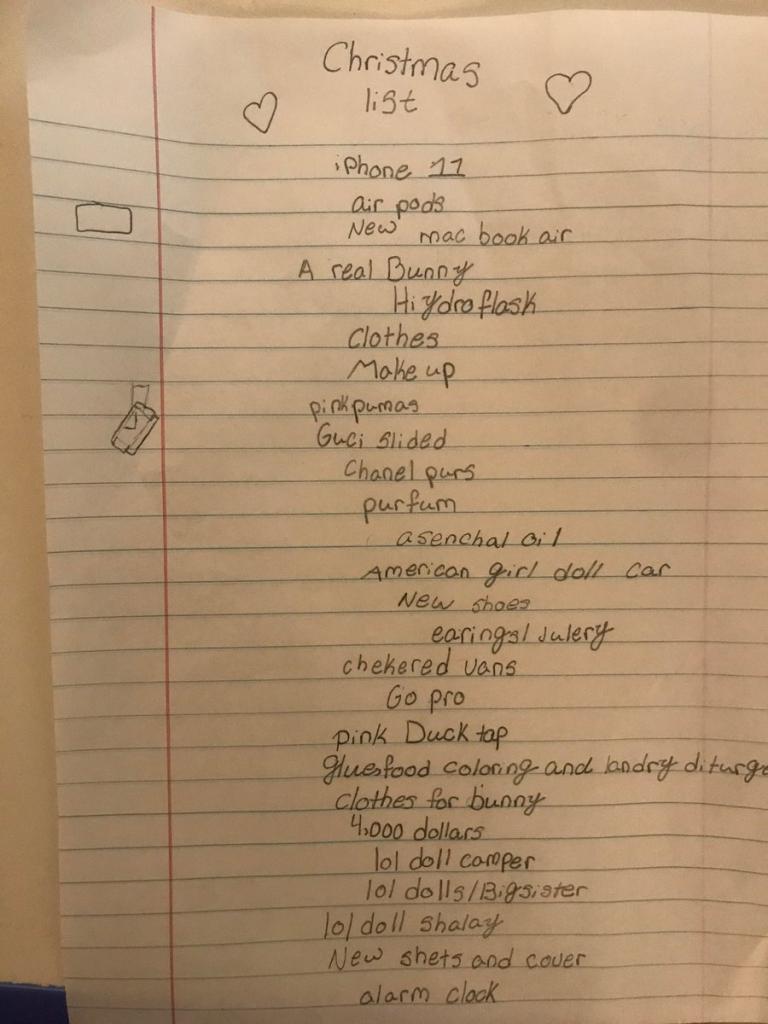 Christmas
list
iPhone 11
air pods
New mac book air
A real Bunny
Hiydroflask
Clothes
Make up
pink pumas
Guci slided
Chanel purs
purfum
asenchal oil
American girl doll car
New shoes
earings/Julery
chekered vans
Go pro
pink Duck tap
glue food coloring and landry diturge
Clothes for bunny
4,000 dollars
lol doll camper
lol dolls/Bigsister
lol doll shalay
New shets and cover
alarm clock